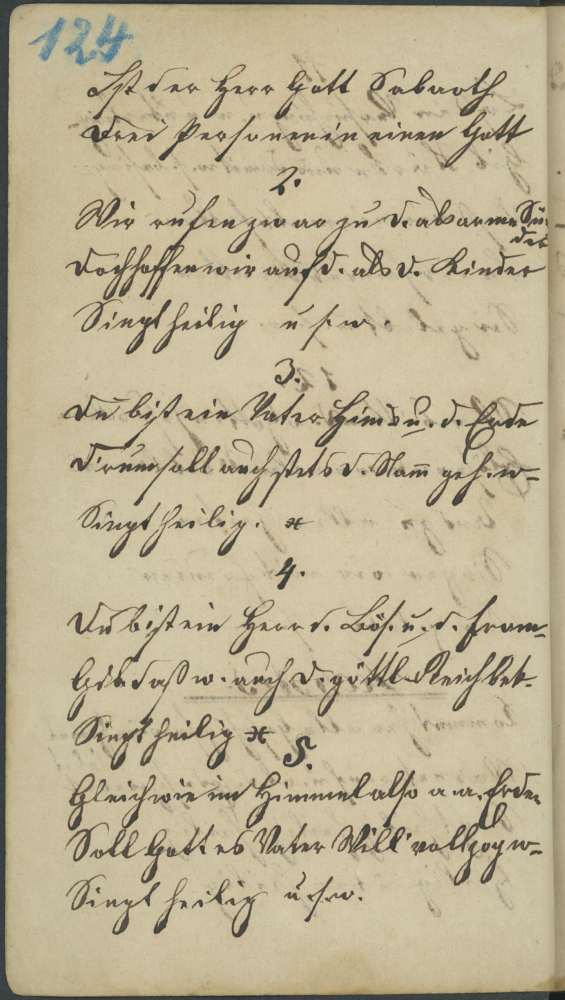 124
Ist der Herr Gott Sabaoth
Drei Personen in einen Gott
2.
Wir rufen zwar zu D. als arme Sün-
der
Doch hoffen wir auf d. als D. Kinder
Singt heilig u. s. w.
3.
Du bist ein Vater Him's u. d. Erde
D'rum soll auch stets D. Nam̄ geh. w-
Singt heilig. x
4.
Du bist ein Herr d. Bös. u. d. From-
Gib daß w. auch D. göttl. Reich bek-
Singt heilig x
5.
Gleich wie im Himmel also a. a. Erden
Soll Gottes Vater Will' vollzog w-
Singt heilig u. s. w.